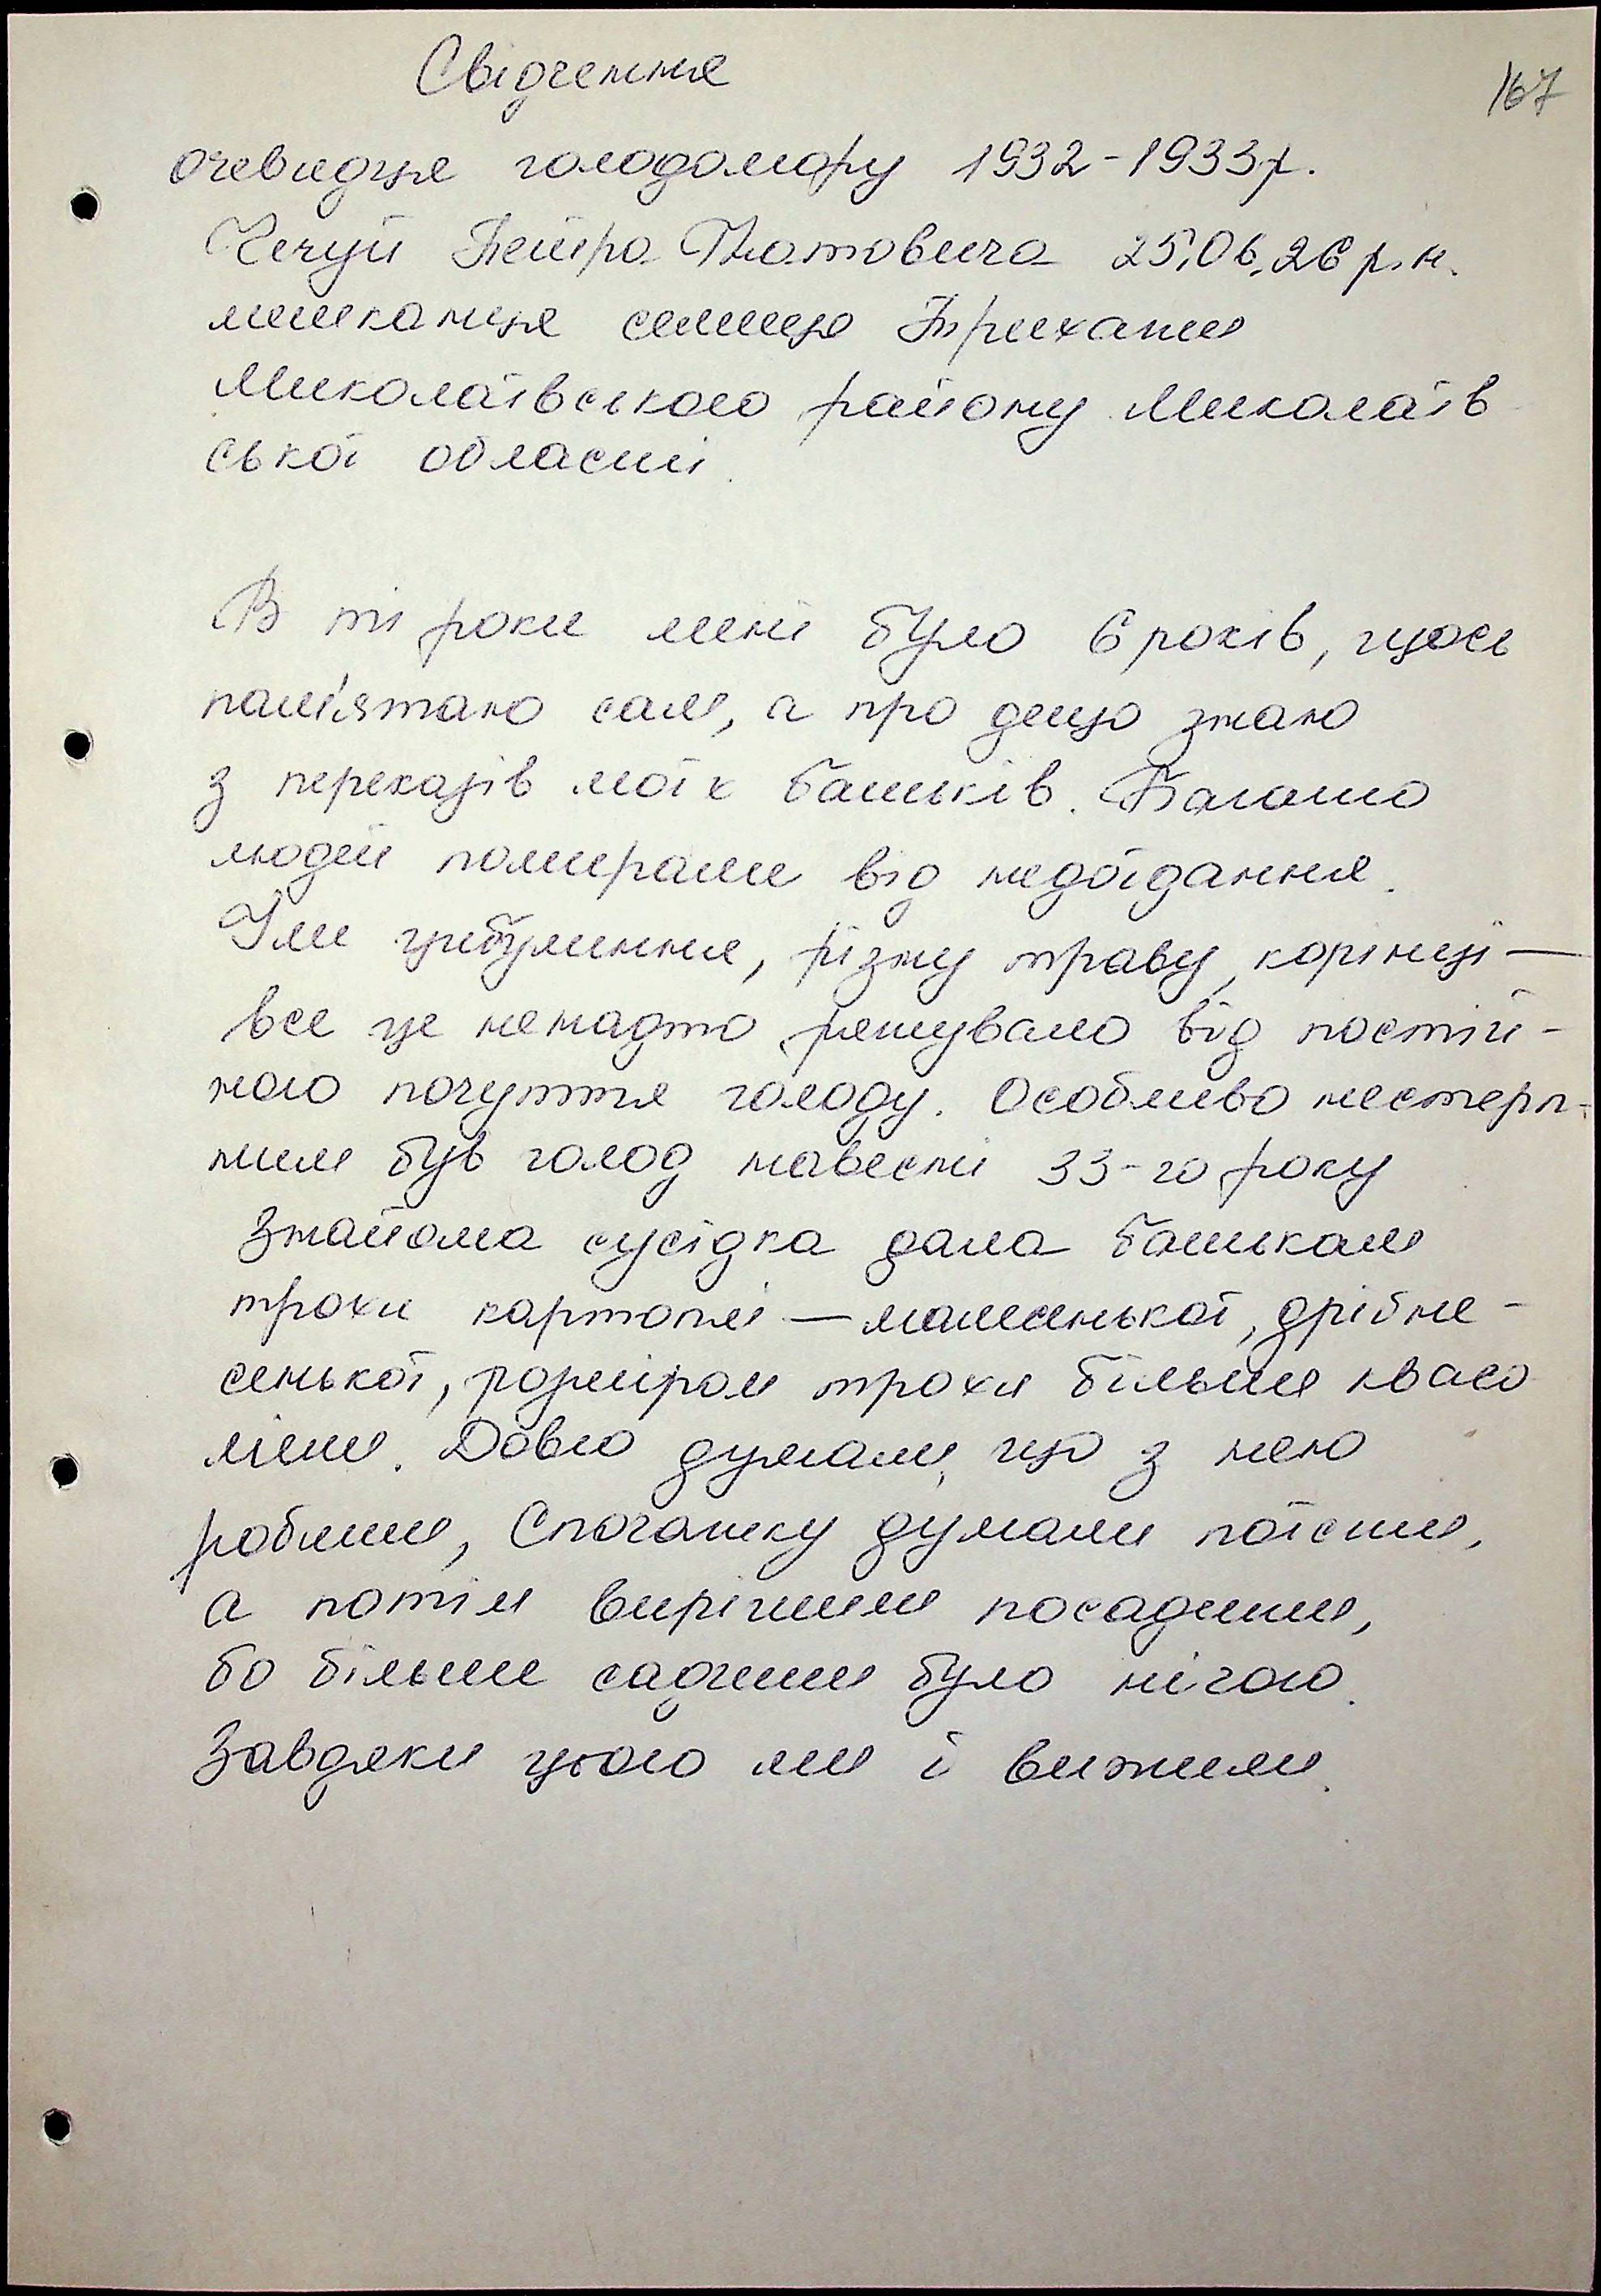 Свідчення
167
очевидця голодомору 1932-1933р.
Чечуй Петра Платовича 25.06.26 р.н.
мешканця селища Трихати
Миколаївського району Миколаїв
ської області.
В ті роки мені було 6 років, щось
пам'ятаю сам, а про дещо знаю
з переказів моїх батьків. Багато
людей помирали від недоїдання.
Їли цибулиння, різну траву, корінці —
все це ненадто рятувало від постій-
ного почуття голоду. Особливо нестерп-
ним був голод навесні 33-го року
Знайома сусідка дала батькам
трохи картоплі — малесенької, дрібне-
сенької, розміром трохи більше квасо
лини. Довго думали, що з нею
робити, Спочатку думали поїсти,
а потім вирішили посадити,
бо більше садити було нічого.
Завдяки цього ми і вижили.